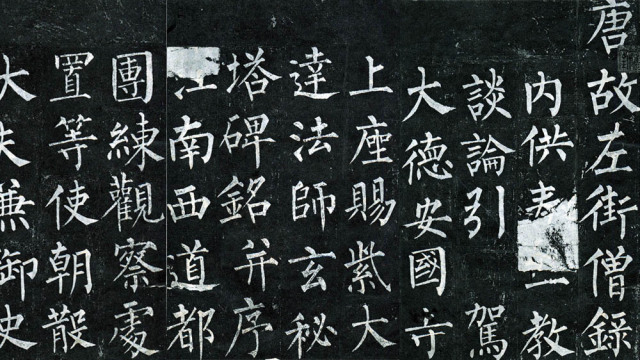 唐故左街僧錄
内供奉三教
談論引駕
大德安國寺
上座賜紫大
達法師玄秘
塔碑銘并序
江南西道都
團練觀察處
置等使朝散
大夫兼御史